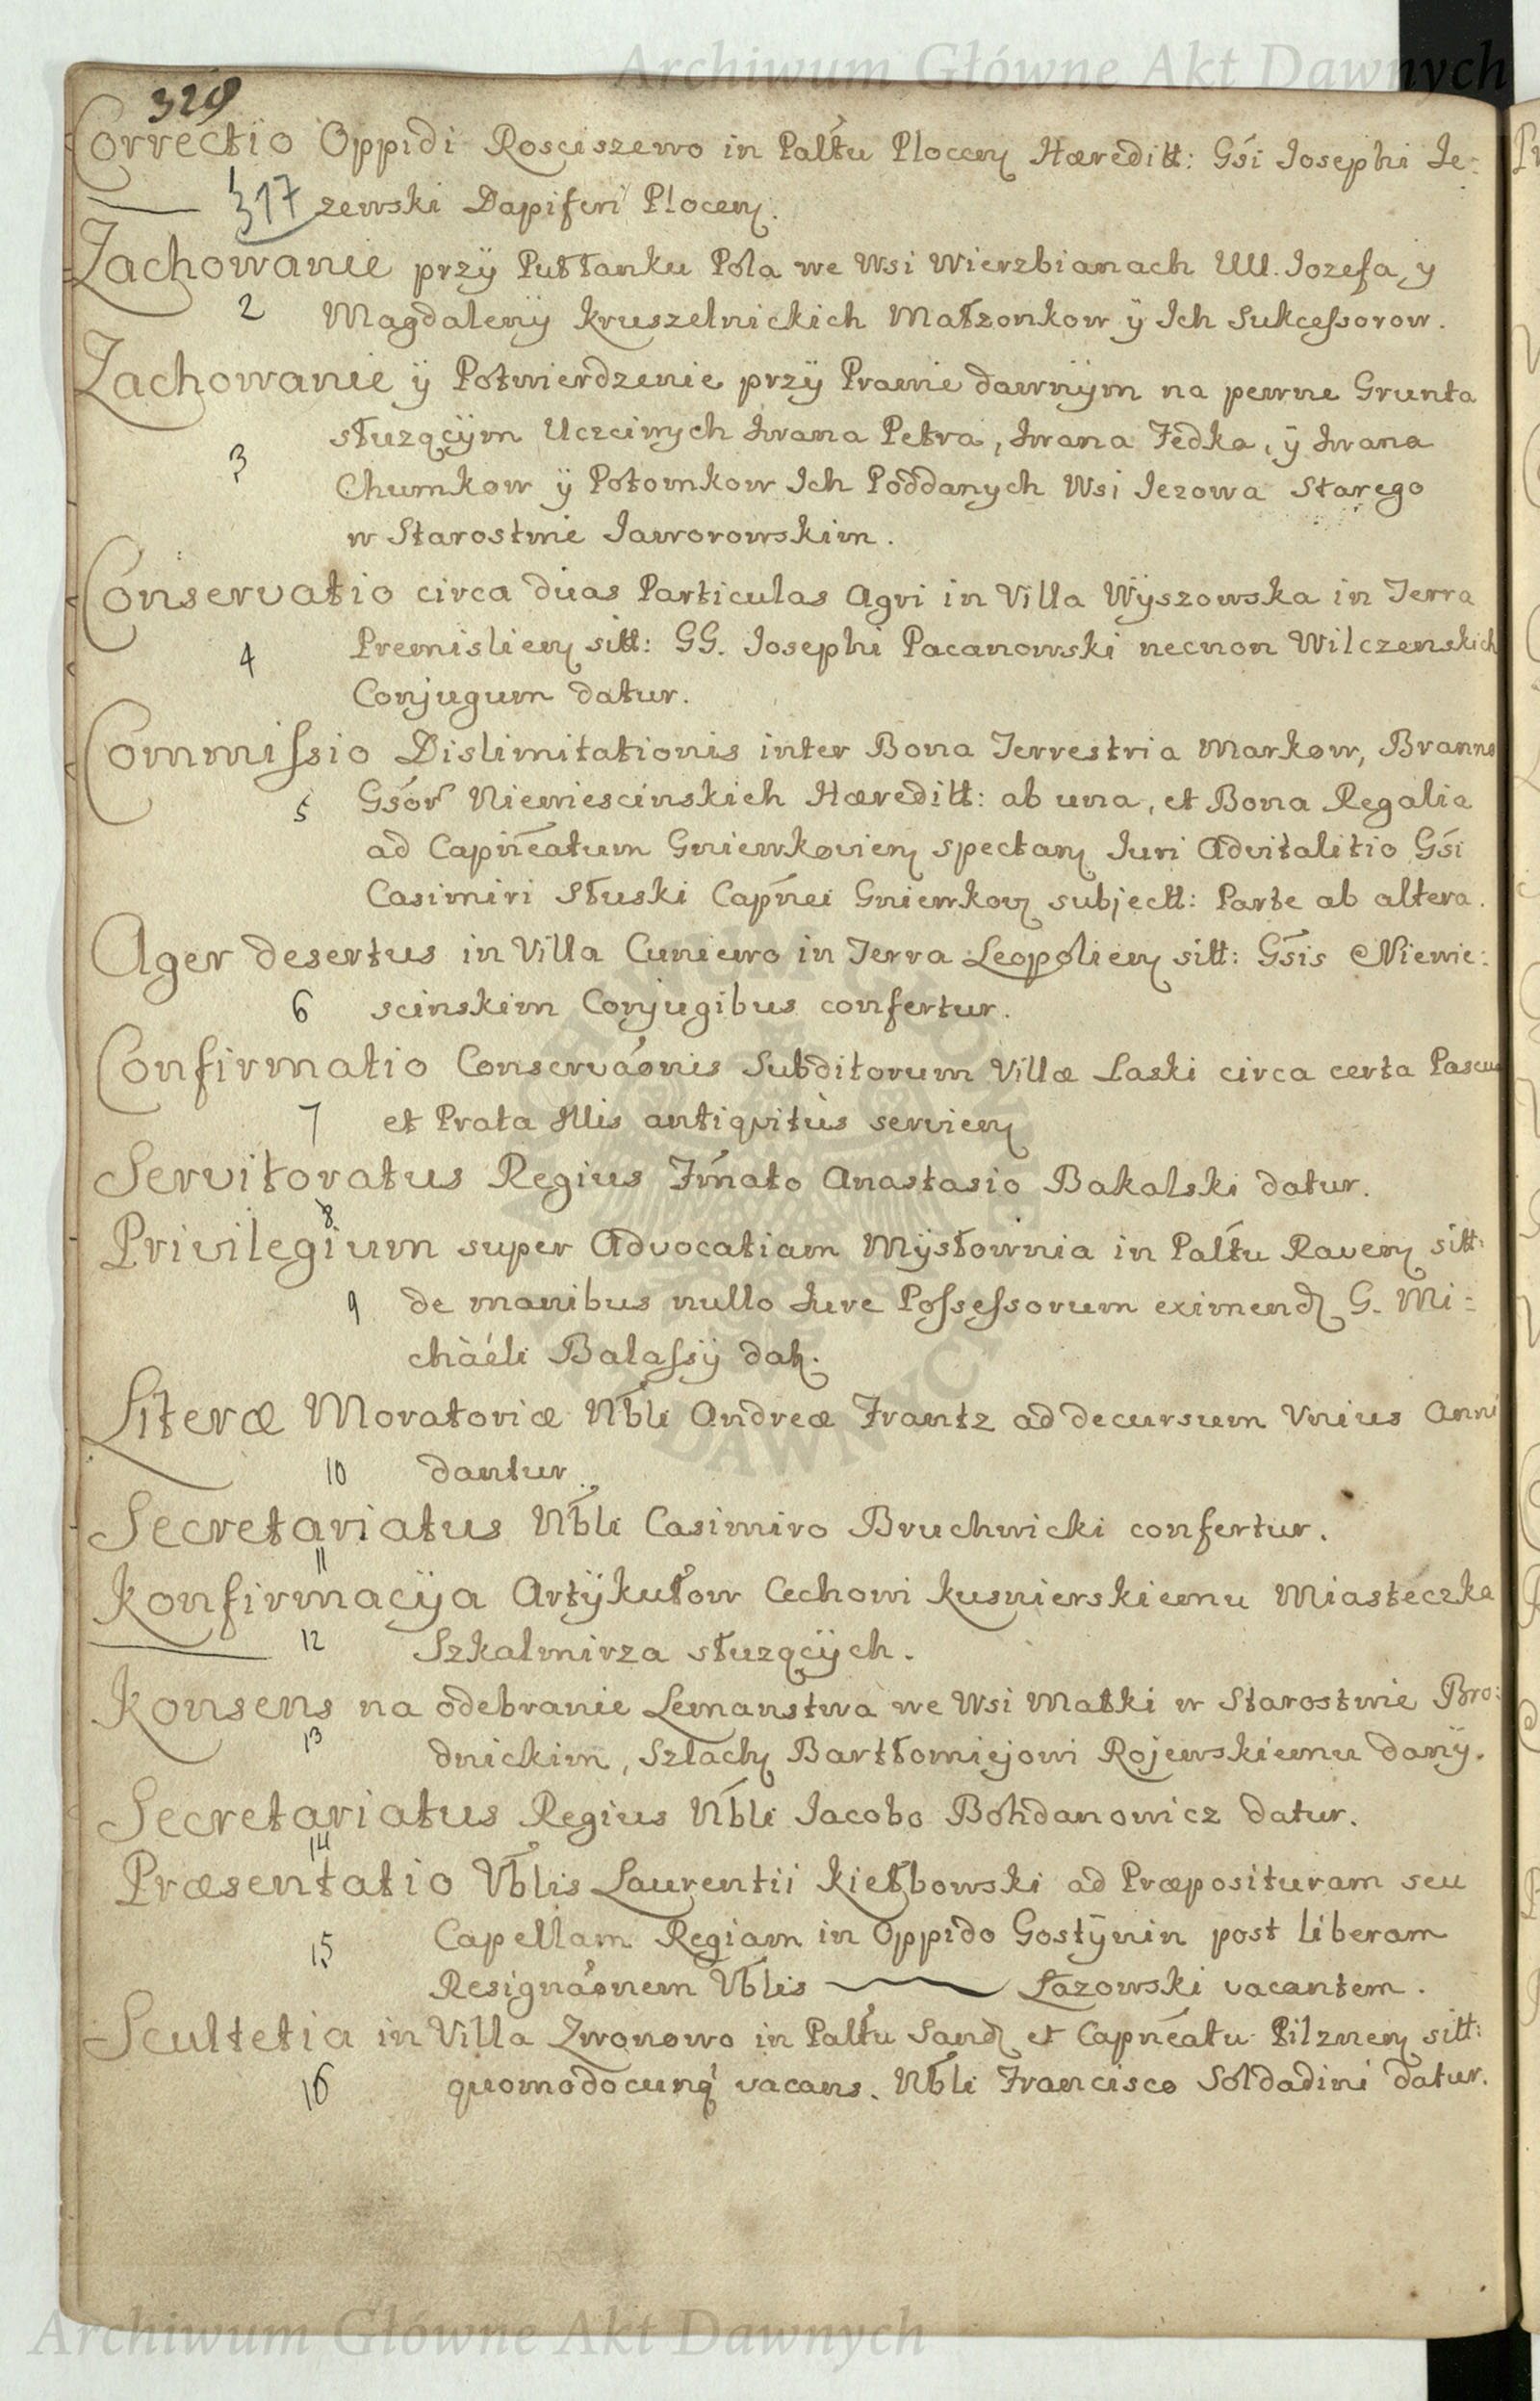 Archiwum Główne Akt Dawnych
329
Correctio Oppidi Rosciszewo in Palt̃u Plocen̄ Hæreditt: Gsi Josephi Je:
1
317 zewski Dapiferi Plocen̄.
Zachowanie przÿ Puttanku Pola we Wsi Wierzbianach UU. Jozefa y
2 Magdalenÿ Kruszelnickich Małzonkow ÿ Jch Sukceſsorow.
Zachowanie ÿ Potwierdzenie przÿ Prawie dawnÿm na pewne Grunta
słuzącÿm Uczciwych Jwana Petra, Jwana Fedka, ÿ Jwana
3 Chumkow ÿ Potomkow Jch Poddanych Wsi Jezowa Starego
w Starostwie Jaworowskim.
Conservatio circa duas Particulas Agri in Villa Wÿszowska in Terra
4 Premislien̄ sitt: GG. Josephi Pacanowski necnon Wilczenskich
Conjugum datur.
Commiſsio Dislimitationis inter Bona Terrestria Markow, Branno
5 Gsor̃ Niewiescinskich Hæreditt: ab una, et Bona Regalia
ad Capn̄eatum Gniewkovien̄ spectan̄ Juri Advitalitio Gsi
Casimiri Słuski Capn̄ei Gniewkov̄ subjectt: Parte ab altera.
Ager desertus in Villa Cuniewo in Terra Leopolien̄ sitt: Gsis Niewie:
6 scinskim Conjugibus confertur.
Confirmatio Conservaõnis Subditorum Villæ Laski circa certa Pascua
7 et Prata Illis antiqvitùs servien̄
Servitoratus Regius Fm̃ato Anastasio Bakalski datur.
8
Privilegium super Advocatiam Mÿstownia in Palt̃u Raven̄ sitt:
9 de manibus nullo Jure Poſseſsorum eximend̄ G. Mi:
chàéli Balaſsÿ dat̄.
Literæ Moratoriæ Nb̃li Andreæ Frantz ad decursum Vnius Anni
10 dantur.
Secretariatus Nb̃li Casimiro Bruchwicki confertur.
11
Konfirmacÿa Artÿkułow Cechowi Kusnierskiemu Miasteczka
12 Szkalmirza słuzącÿch.
Konsens na odebranie Lemanstwa we Wsi Małki w Starostwie Bro:
13 dnickim, Szlach̄ Barttomiejowi Rojewskiemu danÿ.
Secretariatus Regius Nb̃li Jacobo Bohdanowicz datur.
14
Præsentatio Vb̃lis Laurentii Kiełbowski ad Præposituram seu
15 Capellam Regiam in Oppido Gostÿnin post liberam
Resignaõnem Vb̃lis ——— Łazowski vacantem.
Scultetia in Villa Zwonowo in Palt̃u Sand̄ et Capn̄eatu Pilznen̄ sitt:
16 quomodocunq̃ vacans. Nb̃li Francisco Soldadini datur.
Archiwum Główne Akt Dawnych